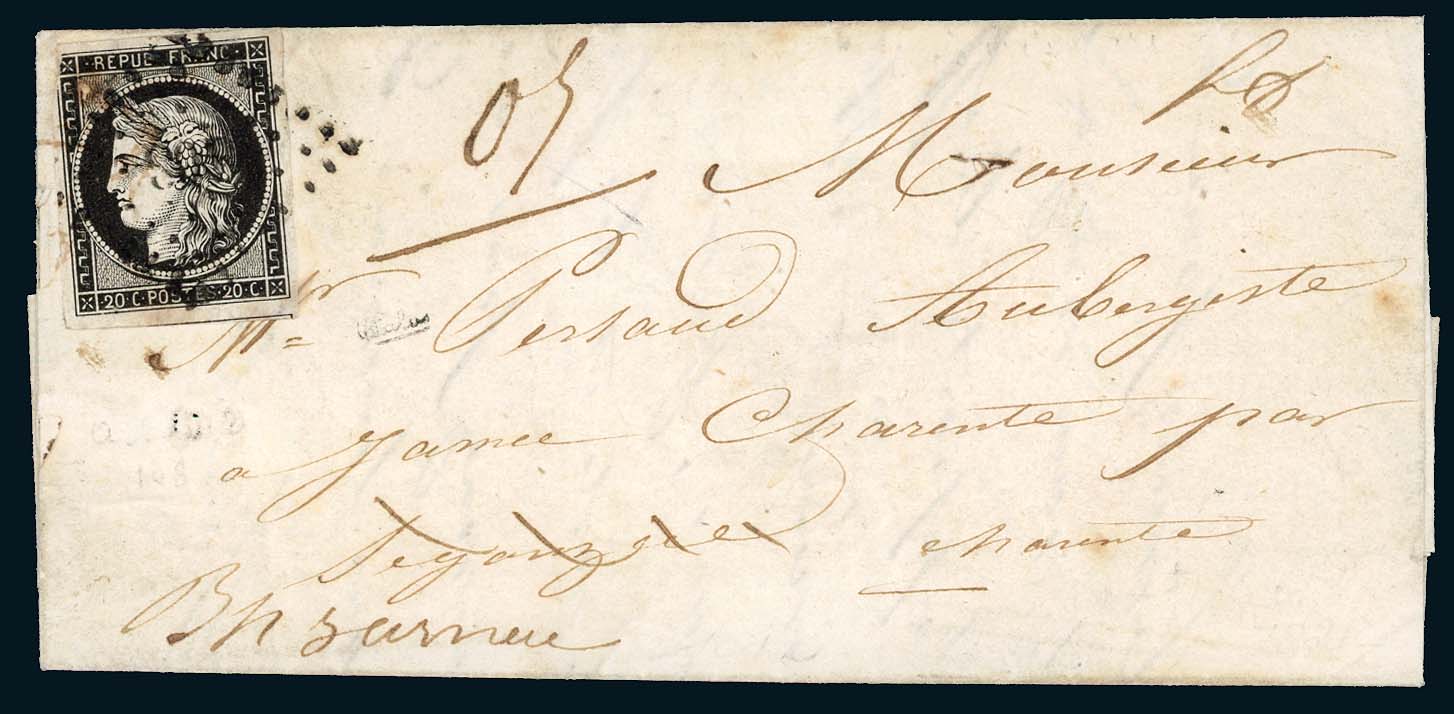 REPUB FRANC
20 · C · POSTES · 20 · C ·
05
Monsieur
Mr Persaud Aubergiste
a Jarnee Charente par
Segonzac Charente